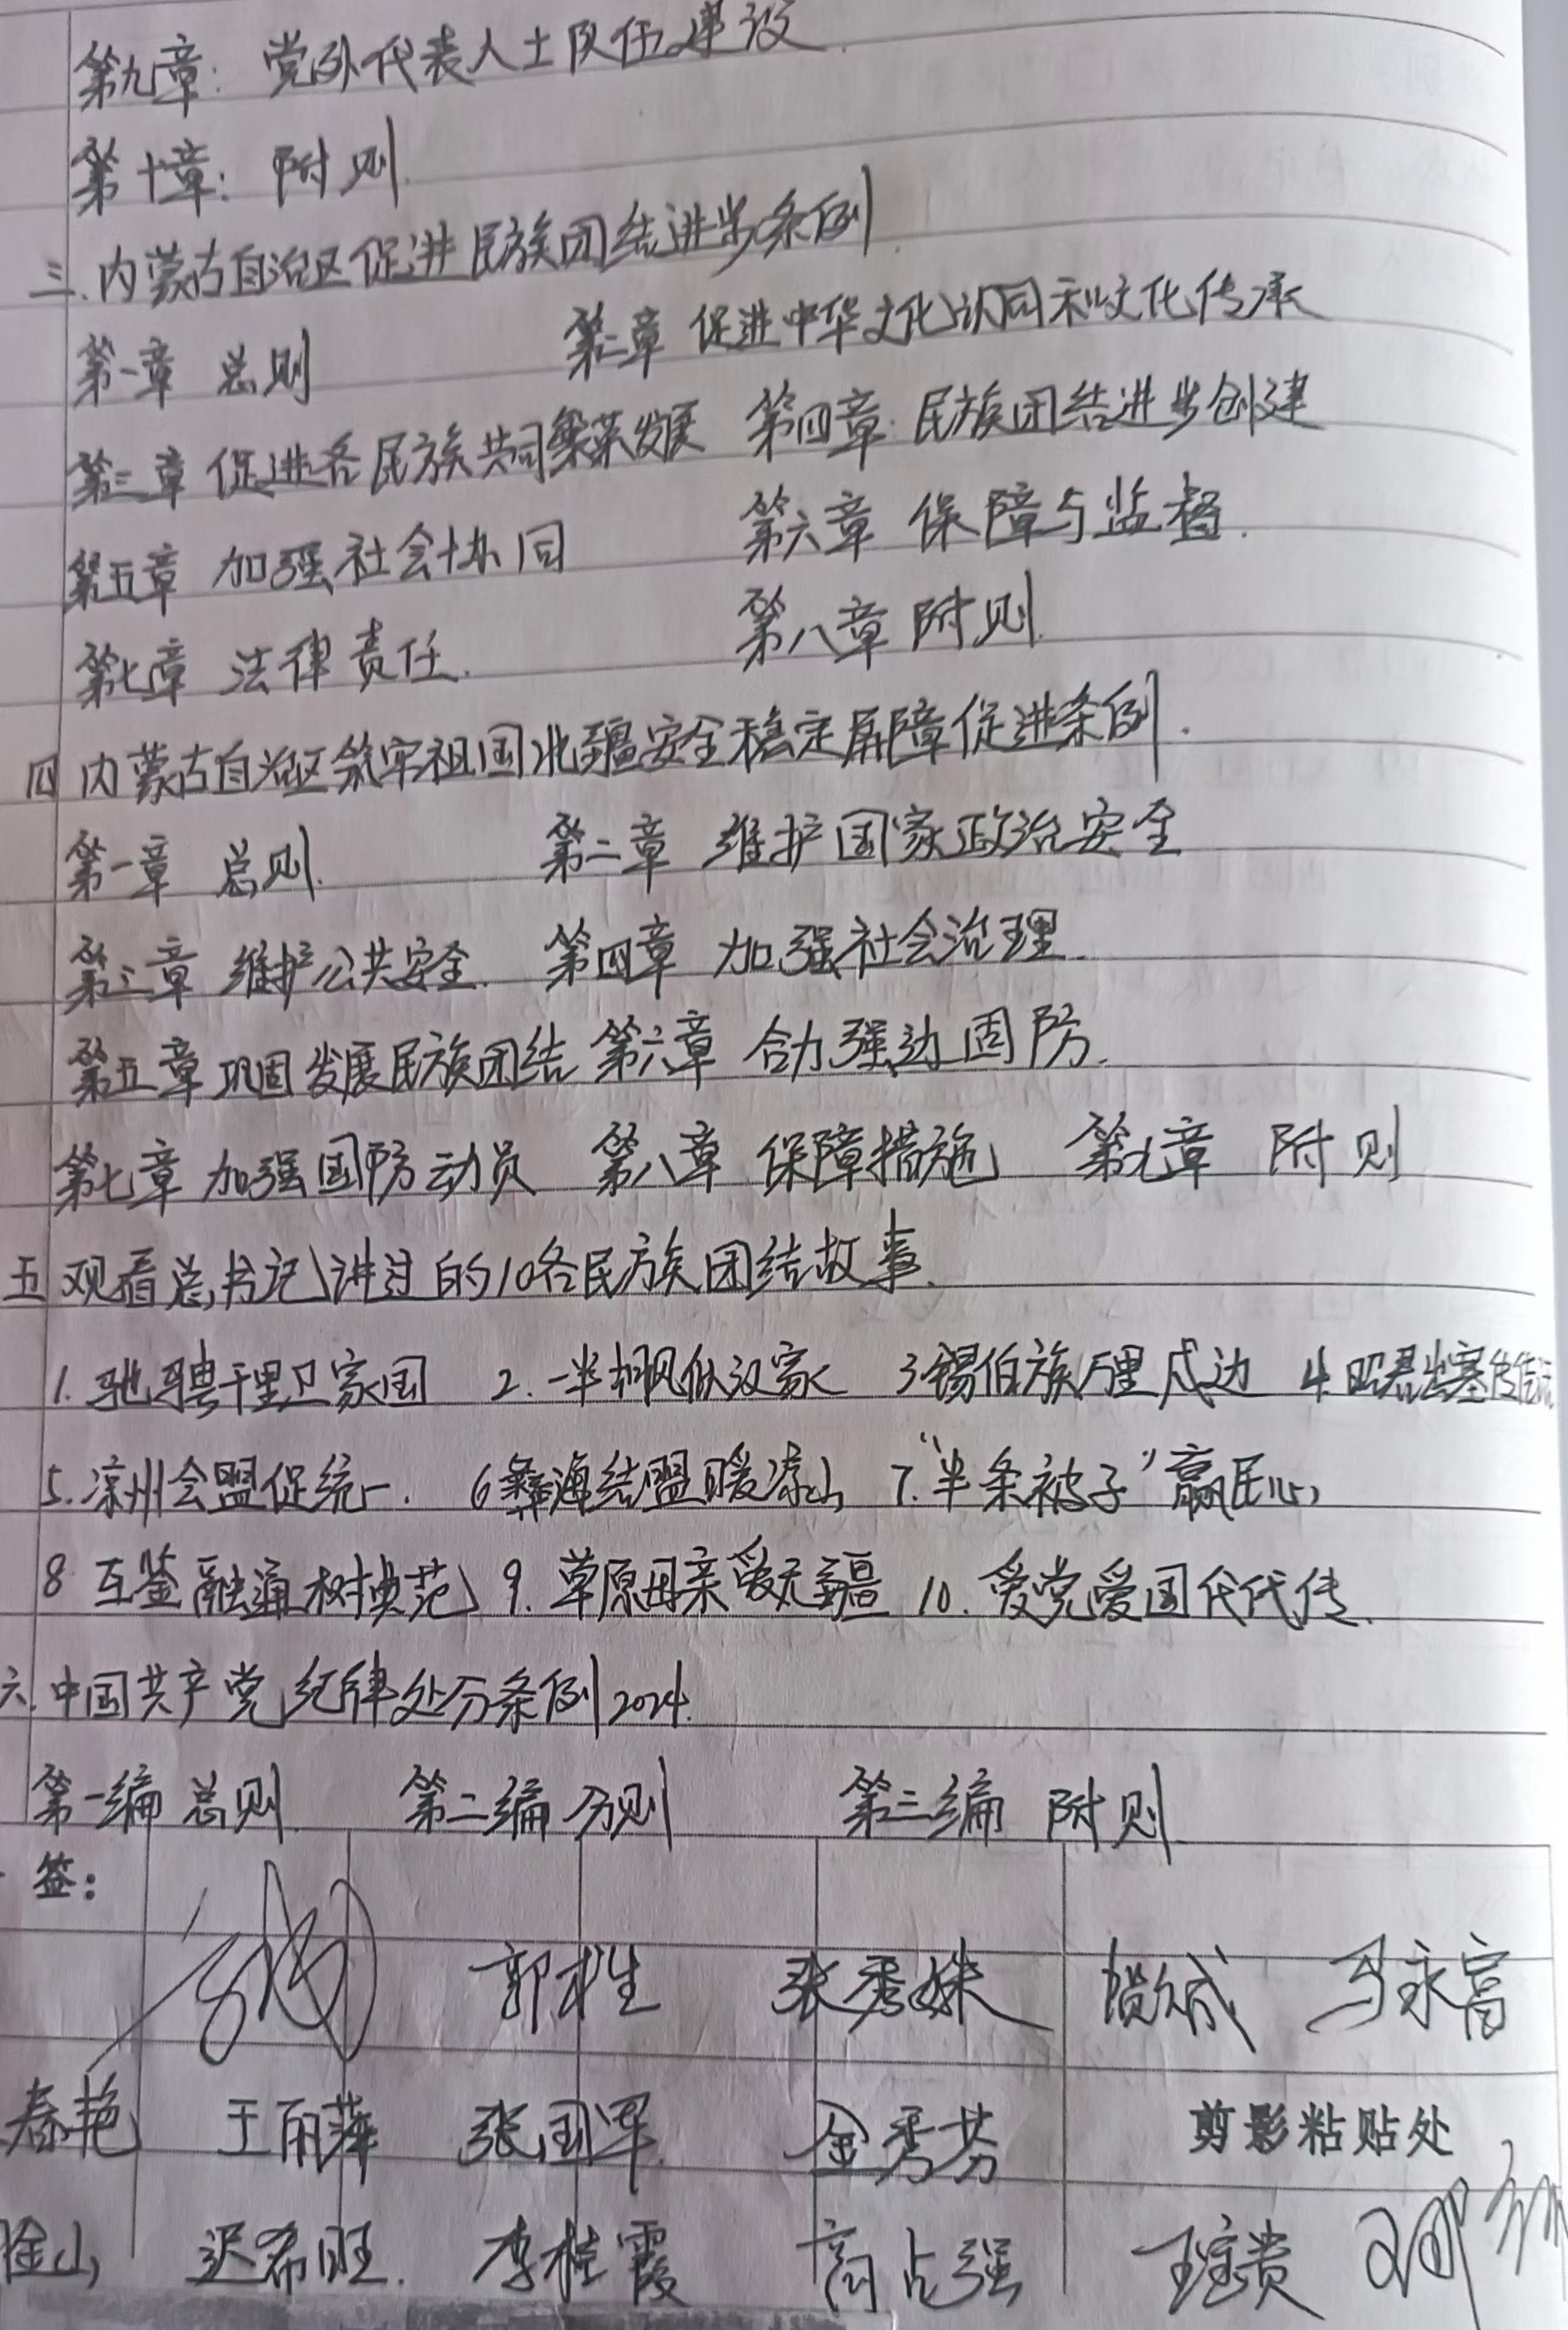 第九章：党外代表人士队伍建设.
第十章：附则.
三.内蒙古自治区促进民族团结进步条例.
第一章 总则 第二章 促进中华文化认同和文化传承
第三章 促进各民族共同繁荣发展 第四章 民族团结进步创建
第五章 加强社会协同 第六章 保障与监督.
第七章 法律责任. 第八章 附则.
四 内蒙古自治区筑牢祖国北疆安全稳定屏障促进条例.
第一章 总则. 第二章 维护国家政治安全
第三章 维护公共安全. 第四章 加强社会治理.
第五章 巩固发展民族团结 第六章 合力强边固防.
第七章 加强国防动员 第八章 保障措施 第九章 附则
五 观看总书记讲过的10各民族团结故事.
1. 驰骋千里卫家国 2. 一半株似汉家 3 锡伯族万里戍边 4. 昭君出塞传
5. 凉州会盟促统一. 6 彝海结盟暖凉山 7. “半条被子”赢民心
8 互鉴融通树典范 9. 草原母亲爱无疆 10. 爱党爱国代代传.
六.中国共产党纪律处分条例2024.
第一编 总则 第二编 分则 第三编 附则
签：
张秀妹 马永富
春艳 王丽萍 张国军 金秀芬 剪影粘贴处
金山 迟希旺. 李桂霞 高占强